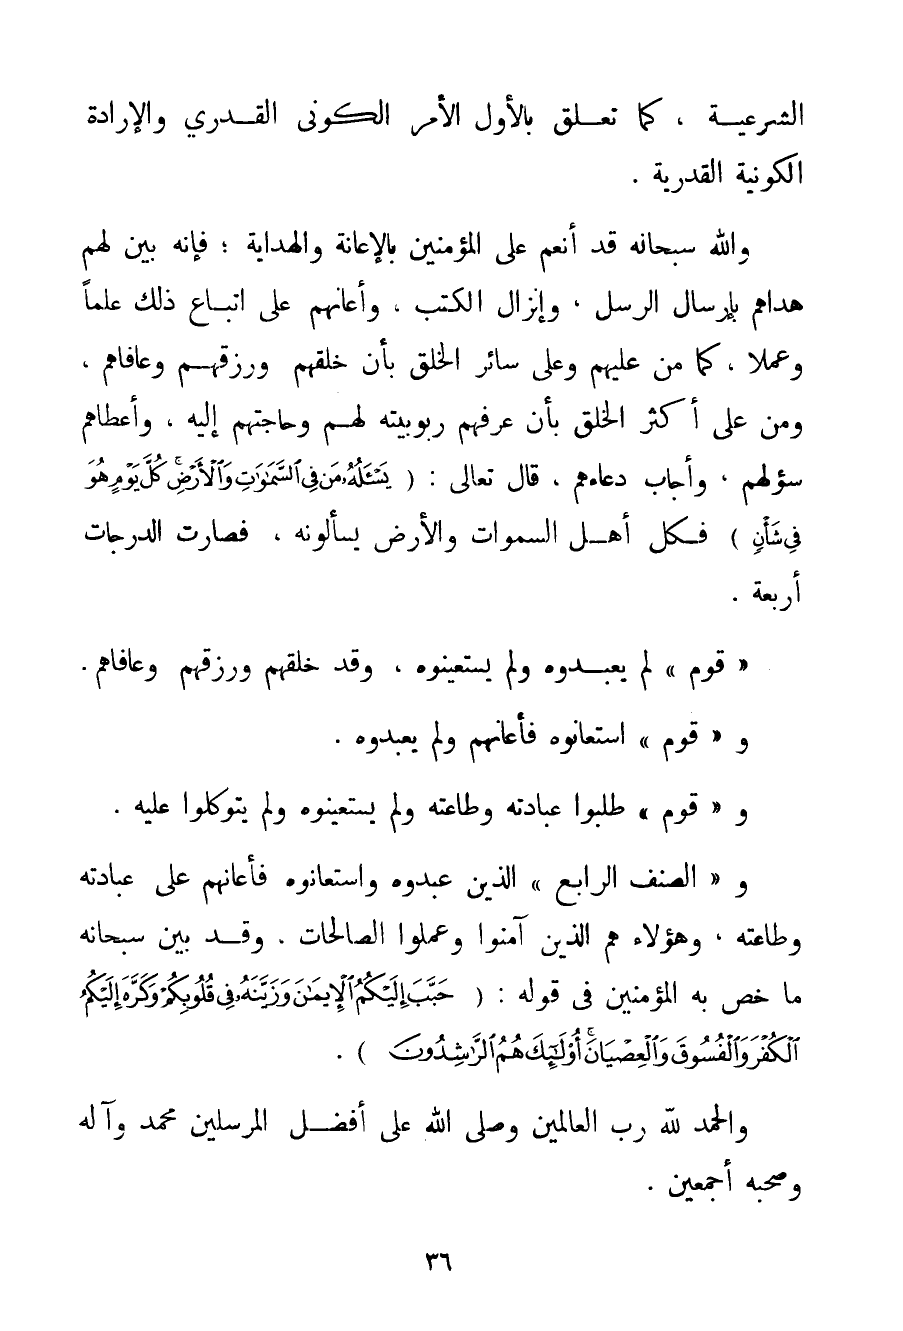 الشرعية ، كما تعلق بالأول الأمر الكونى القدري والإرادة
الكونية القدرية .
والله سبحانه قد أنعم على المؤمنين بالإعانة والهداية ؛ فإنه بين لهم
هداهم بإرسال الرسل ، وإنزال الكتب ، وأعانهم على اتباع ذلك علماً
وعملا ، كما من عليهم وعلى سائر الخلق بأن خلقهم ورزقهم وعافاهم ،
ومن على أكثر الخلق بأن عرفهم ربوبيته لهم وحاجتهم إليه ، وأعطاهم
سؤلهم ، وأجاب دعاءهم ، قال تعالى : ( يَسْـَٔلُهُۥ مَن فِى ٱلسَّمَٰوَٰتِ وَٱلْأَرْضِ ۚ كُلَّ يَوْمٍ هُوَ
فِى شَأْنٍ ) فكل أهل السموات والأرض يسألونه ، فصارت الدرجات
أربعة .
« قوم » لم يعبدوه ولم يستعينوه ، وقد خلقهم ورزقهم وعافاهم .
و « قوم » استعانوه فأعانهم ولم يعبدوه .
و « قوم » طلبوا عبادته وطاعته ولم يستعينوه ولم يتوكلوا عليه .
و « الصنف الرابع » الذين عبدوه واستعانوه فأعانهم على عبادته
وطاعته ، وهؤلاء هم الذين آمنوا وعملوا الصالحات . وقد بين سبحانه
ما خص به المؤمنين فى قوله : ( حَبَّبَ إِلَيْكُمُ ٱلْإِيمَٰنَ وَزَيَّنَهُۥ فِى قُلُوبِكُمْ وَكَرَّهَ إِلَيْكُمُ
ٱلْكُفْرَ وَٱلْفُسُوقَ وَٱلْعِصْيَانَ ۚ أُو۟لَٰٓئِكَ هُمُ ٱلرَّٰشِدُونَ ) .
والحمد لله رب العالمين وصلى الله على أفضل المرسلين محمد وآله
وصحبه أجمعين .
٣٦